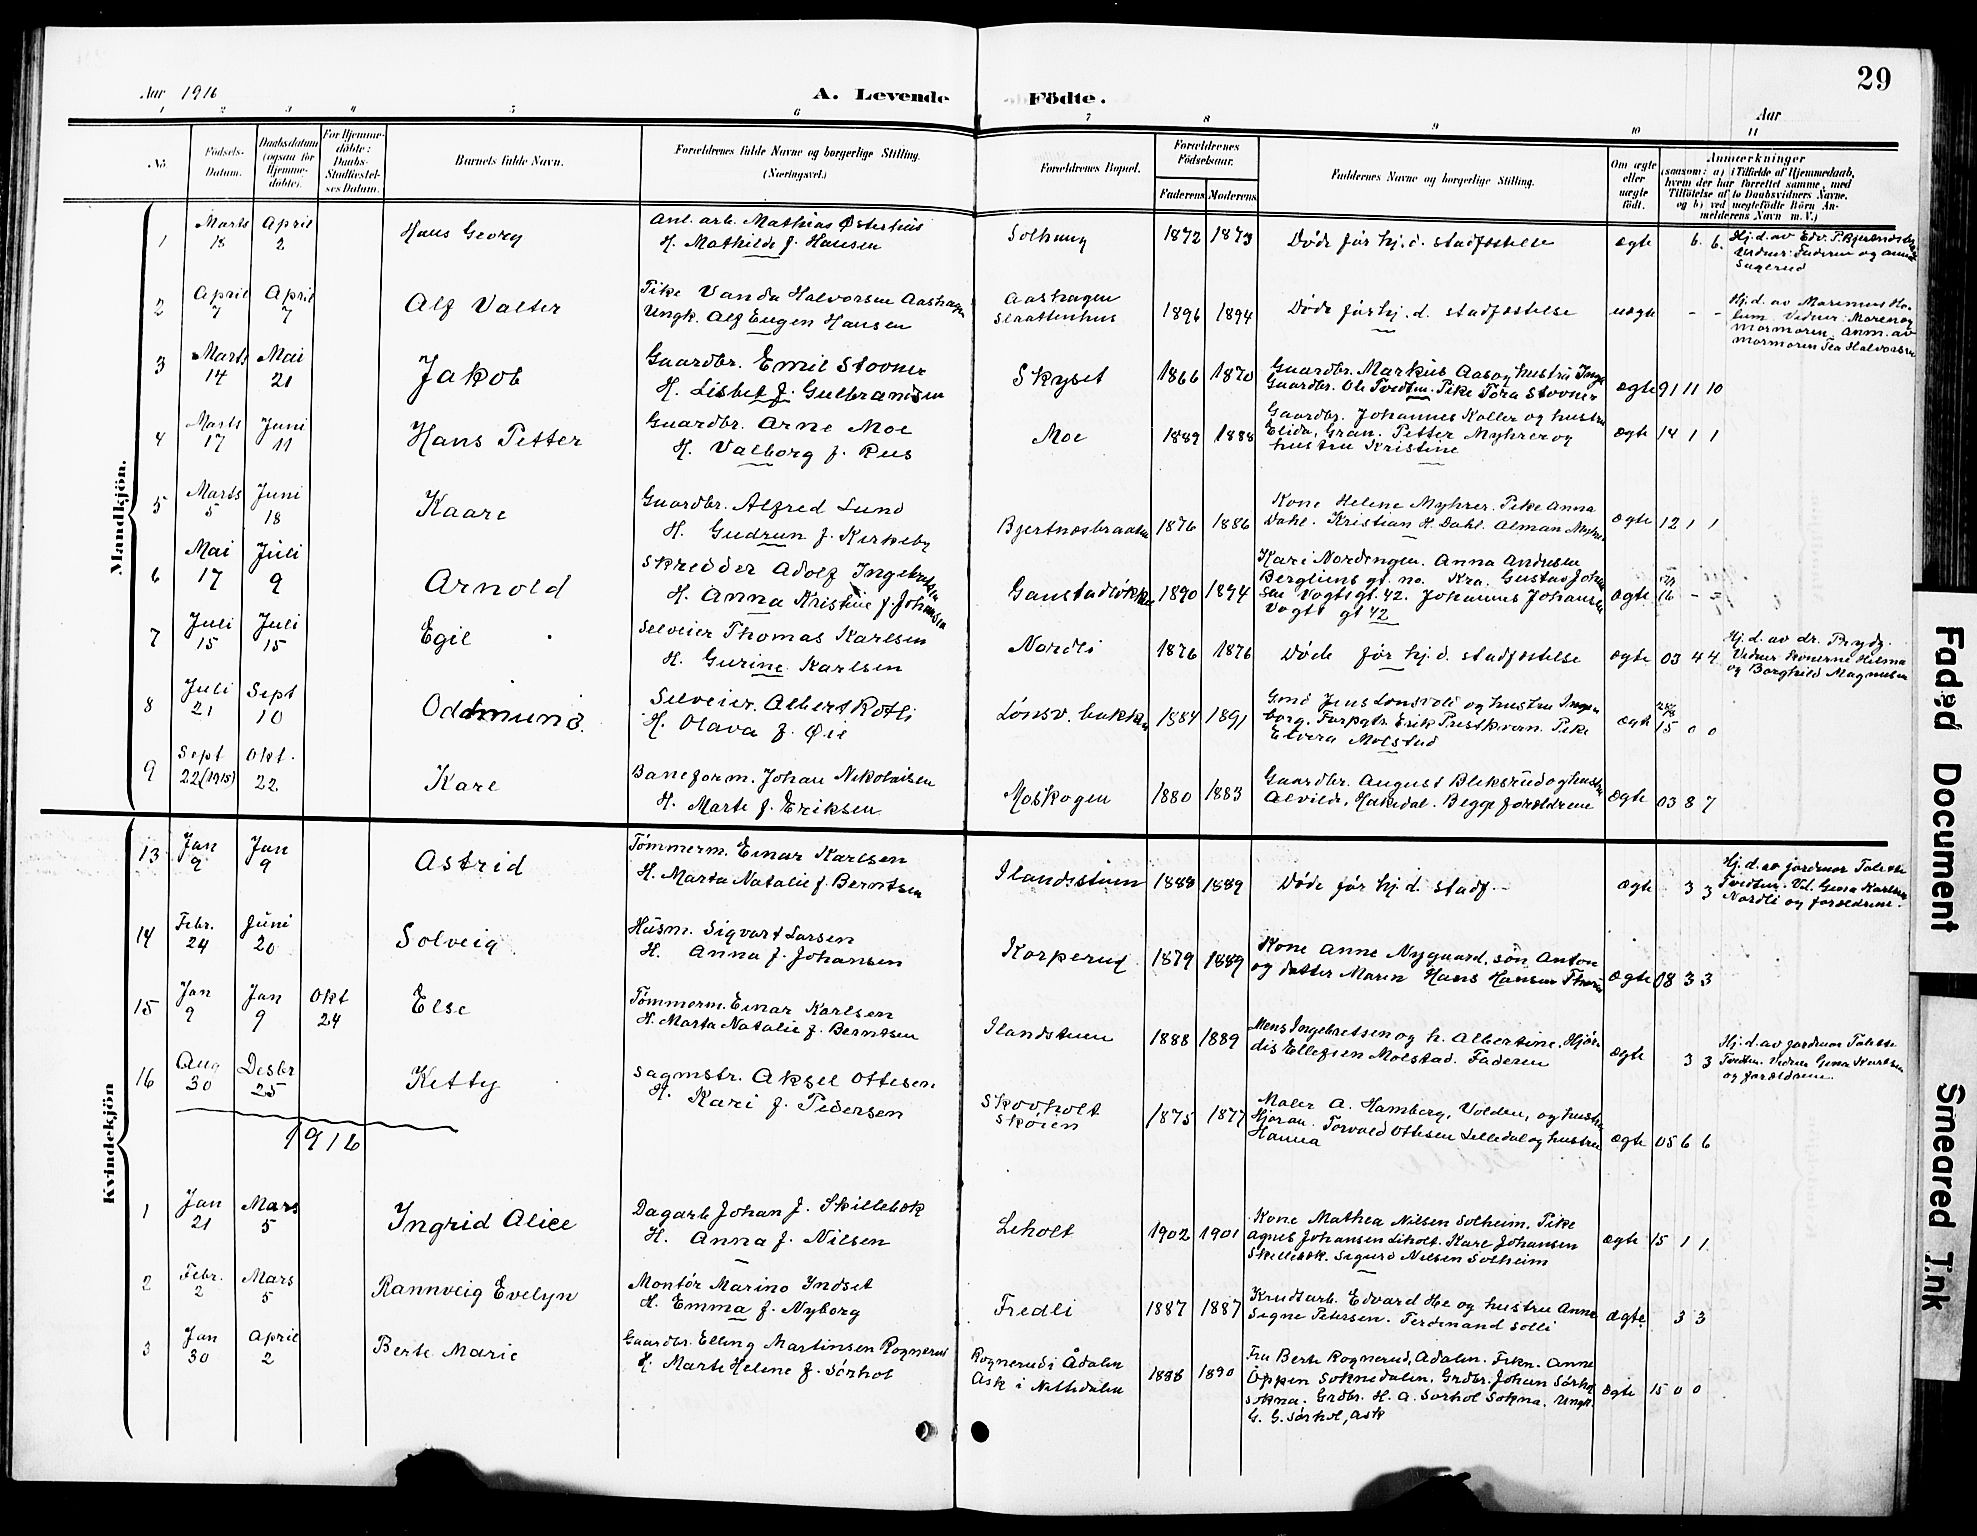 29
Aar 1916
A. Levende Födte.
Aar
1 2 3 4 5 6 7 8 9 10 11
No
Födsels-Datum.
Daabsdatum (ogsaa for Hjemmedöbte).
For Hjemmedöbte: Daabs-Stadfæstelses Datum.
Barnets fulde Navn.
Forældrenes fulde Navne og borgerlige Stilling. (Næringsvei.)
Forældrenes Bopæl.
Forældrenes Födselsaar.
Faderens Moderens
Faddernes Navne og borgerlige Stilling.
Om ægte eller uægte födt.
Anmærkninger
(saasom: a) i Tilfælde af Hjemmedaab, hvem der har forrettet samme, med Tilföielse af to Daabsvidners Navne. og b) ved uægtefödte Börn Anmelderens Navn m. V.)
Mandkjön.
1 Marts 18 April 2 Hans Georg
Anl. arb. Mathias Østeshus
H. Mathilde f. Hansen
Solhaug 1872 1873 Døde før hj. d. stadfæstelse ægte 6. 6.
Hj. d. av Edv. P.
Vidner: Faderen og Anna
2 April 7 April 7 Alf Valter
Pike Vanda Halvorsen Aashagen
Ungk. Alf Eugen Hansen
Aashagen
Slaattenhus
1896 1894 Døde før hj. d. stadfæstelse uægte - -
Hj. d. av Marenus
Vidner: Moren og
mormoren. Anm. av
mormoren Tea Halvorsen
3 Marts 14 Mai 21 Jakob
Gaardbr. Emil Stovner
H. Lisbet f. Gulbrandsen
Skyset 1866 1870
Gaardbr. Markus Aas og hustru Inga
Gaardbr. Ole Tvedten. Pike Tora Stovner
ægte 91 11 10
4 Marts 17 Juni 11 Hans Petter
Gaardbr. Arne Moe
H. Valborg f. Rus
Moe 1889 1888
Gaardbr. Johannes Koller og hustru
Elida, Gran. Petter Myhrer og
hustru Kristine
ægte 14 1 1
5 Marts 5 Juni 18 Kaare
Gaardbr. Alfred Lund
H. Gudrun f. Kirkeby
Bjertnæsbraaten 1876 1886
Kone Helene Myhrer. Pike Anna
Dahl. Kristian H. Dahl. Alman Myhrer
ægte 12 1 1
6 Mai 17 Juli 9 Arnold
Skredder Adolf Ingebretsen
H. Anna Kristine f. Johansen
Ganstadløkken 1890 1894
Kari Nordengen. Anna Andresen
Bergliens gt. no. Kra. Gustav Johan
sen Vogts gt. 42. Johannes Johansen
Vogts gt 42
ægte 16 - -
7 Juli 15 Juli 15 Egil
Selveier Thomas Karlsen
H. Gurine Karlsen
Nordli 1876 1876 Døde før hj. d. stadfæstelse ægte 03 4 4
Hj. d. av dr. Prydz.
Vidner: Konerne Hilma
og Borghild Magnusen
8 Juli 21 Sept 10 Oddmund.
Selveier. Albert Rotli
H. Olava f. Øie
Lønsv. bakken 1884 1891
Gmd Jens Lønsvoli og hustru Ingeborg. Forpgtr. Erik Prestkvern. Pike
Elvera Molstad
ægte 15 0 0
9 Sept 22 (1915) Okt. 22. Kare
Baneform. Johan Nikolaisen
H. Marte f. Eriksen
Moskogen 1880 1883
Gaardbr. August Bleksrud og hustru
Alvilde, Hakedal. Begge forældrene
ægte 03 8 7
Kvindekjön
13 Jan 9 Jan 9 Astrid
Tømmerm. Einar Karlsen
H. Marta Natalie f. Berntsen
Ilandsstuen 1888 1889 Døde før hj. d. stadf. ægte 3 3
Hj. d. av jordmor Tolette
Tvedten. Vid. Gena Karlsen
Nordli og forældrene.
14 Febr. 24 Juni 20 Solveig
Husm. Sigvart Larsen
H. Anna f. Johansen
Korperud 1879 1889
Kone Anne Nygaard, søn Anton
og datter Maren Hans Hansen
ægte 08 3 3
15 Jan 9 Jan 9 Okt 24 Else
Tømmerm. Einar Karlsen
H. Marta Natalie f. Berntsen
Ilandstuen 1888 1889
Mens Ingebretsen og h. Albertine. Hjør-
dis Ellefsen Molstad. Faderen
ægte 3 3
Hj. d. av jordmor Tolette
Tvedten. Vidner Gena Karlsen
og forældrene.
16 Aug 30 Desbr 25 Ketty
Sagmstr. Aksel Ottesen
H. Kari f. Pedersen
Skovholt
Skøien
1875 1877
Maler A. Hamberg, Volden, og hustru
Hjøran. Torvald Ottesen Lilledal og hustru
Hanna
ægte 05 6 6
1916
1 Jan 21 Mars 5 Ingrid Alice
Dagarb Johan J. Skillebæk
H. Anna f. Nilsen
Leholt 1902 1901
Kone Mathea Nilsen Solheim. Pike
Agnes Johansen Leholt. Karl Johansen
Skillebæk. Sigurd Nilsen Solheim
ægte 15 1 1.
2 Febr. 2 Mars 5 Rannveig Evelyn
Montør Marino Yndset
H. Emma f. Nyborg
Fredli 1887 1887
Krudtarb. Edvard He og hustru Anne
Signe Petersen. Ferdinand Solli
ægte 3 3
3 Jan 30 April 2 Berte Marie
Gaardbr. Elling Martinsen Rognerud
H. Marte Helene f. Sørhol
Rognerud i Ådalen
Ask i Nattedalen
1888 1890
Fru Berte Rognerud, Adalen. Frkn. Anne
Oppen Soknedalen. Grdbr. Johan Sørhol
Sokna. Grdbr. H. A. Sørhol Sokna. Ungk.
G. G. Sørhol, Ask
ægte 15 0 0
Faded Document
Smeared Ink